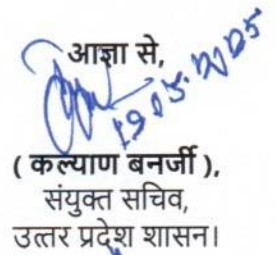 आज्ञा से,
19.05.2025
( कल्याण बनर्जी ),
संयुक्त सचिव,
उत्तर प्रदेश शासन।